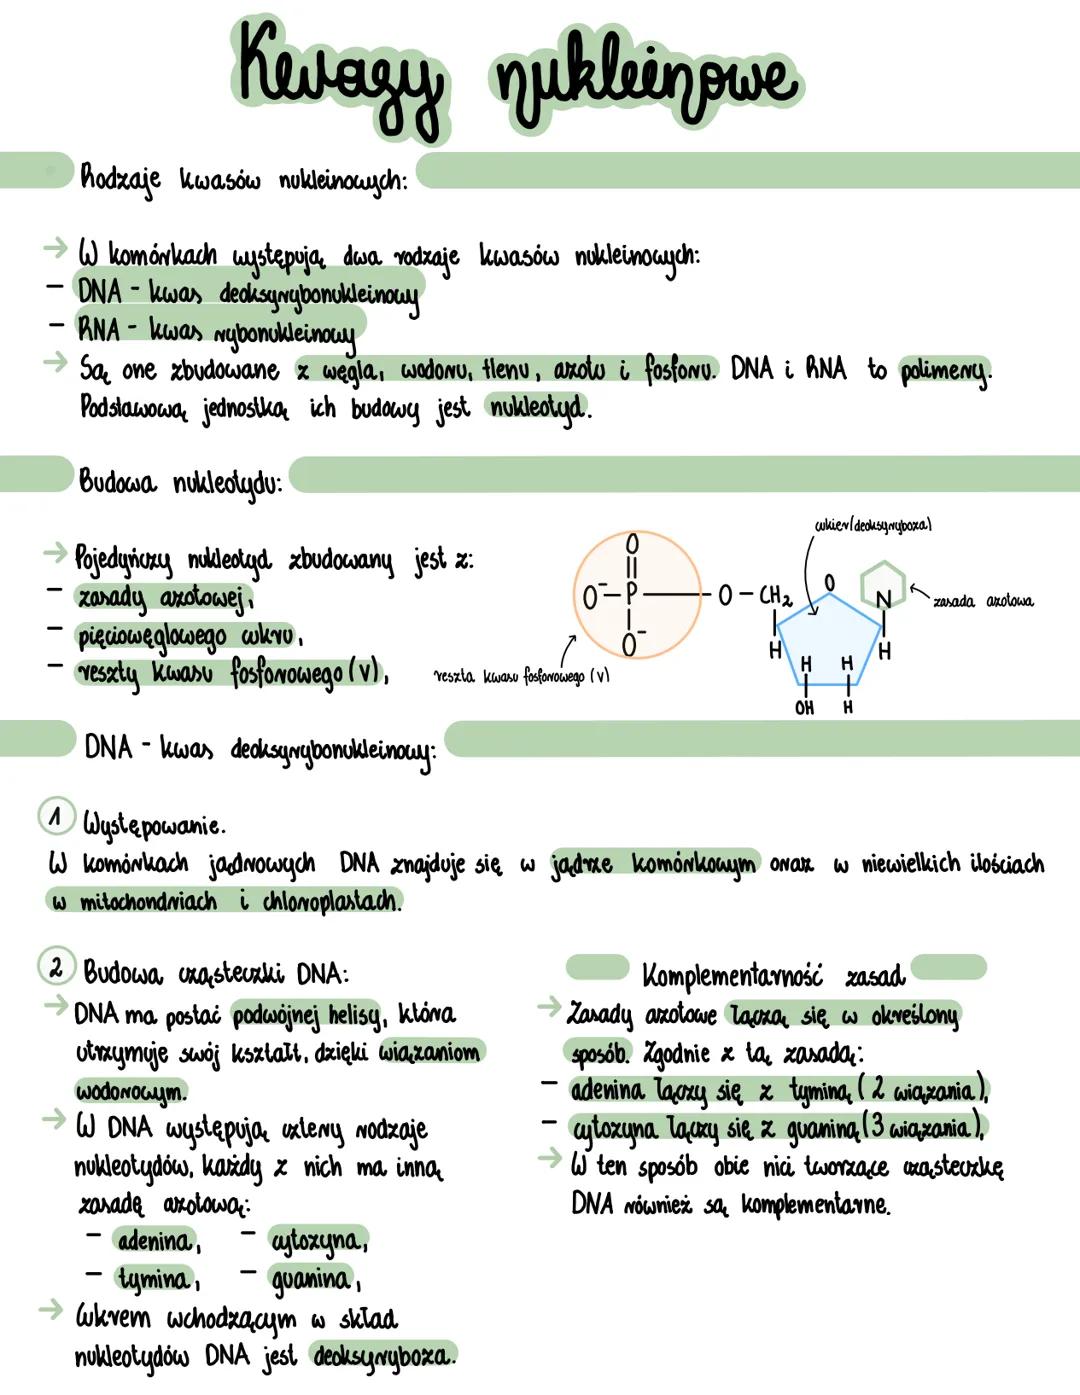 Kwasy nukleinowe
Rodzaje kwasów nukleinowych:
→ W komórkach występują dwa rodzaje kwasów nukleinowych:
- DNA - kwas deoksyrybonukleinowy
- RNA - kwas rybonukleinowy
→ Są one zbudowane z węgla, wodoru, tlenu, azotu i fosforu. DNA i RNA to polimery.
Podstawową jednostką ich budowy jest nukleotyd.
Budowa nukleotydu:
→ Pojedyńczy nukleotyd zbudowany jest z:
- zasady azotowej,
- pięciowęglowego cukru,
- reszty kwasu fosforowego (v),
cukier (deoksyryboza)
O
O⁻ - P - O - CH₂
O⁻
O
N
zasada azotowa
H
H
H
H
OH
H
reszta kwasu fosforowego (v)
DNA - kwas deoksyrybonukleinowy:
1 Występowanie.
W komórkach jądrowych DNA znajduje się w jądrze komórkowym oraz w niewielkich ilościach
w mitochondriach i chloroplastach.
2 Budowa cząsteczki DNA:
→ DNA ma postać podwójnej helisy, która
utrzymuje swój kształt, dzięki wiązaniom
wodorowym.
→ W DNA występują cztery rodzaje
nukleotydów, każdy z nich ma inną
zasadę azotową:
- adenina, - cytozyna,
- tymina, - guanina,
→ Cukrem wchodzącym w skład
nukleotydów DNA jest deoksyryboza.
Komplementarność zasad
→ Zasady azotowe łączą się w określony
sposób. Zgodnie z tą zasadą:
- adenina łączy się z tyminą (2 wiązania),
- cytozyna łączy się z guaniną (3 wiązania),
→ W ten sposób obie nici tworzące cząsteczkę
DNA również są komplementarne.